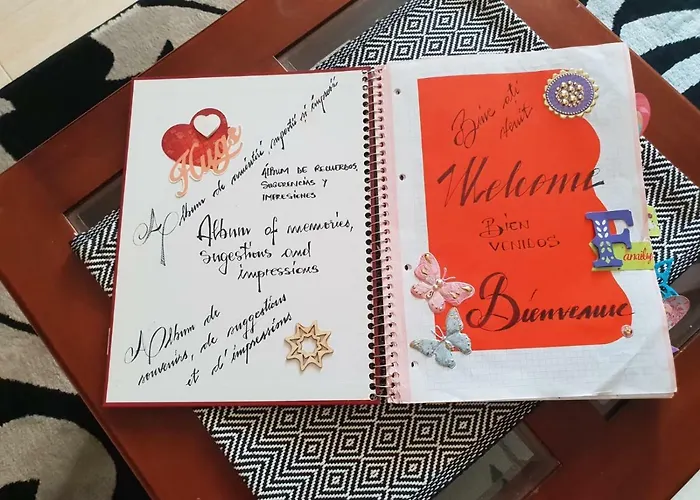 Hugs
Album de amintiri sugestii și impresii
ÁLBUM DE RECUERDOS,
SUGERENCIAS Y
IMPRESIONES
Album of memories,
sugestions and
impressions
Album de
souvenirs, de suggestions
et d'impressions
Bine ați
venit
Welcome
BIEN
VENIDOS
Bienvenue
F
Family